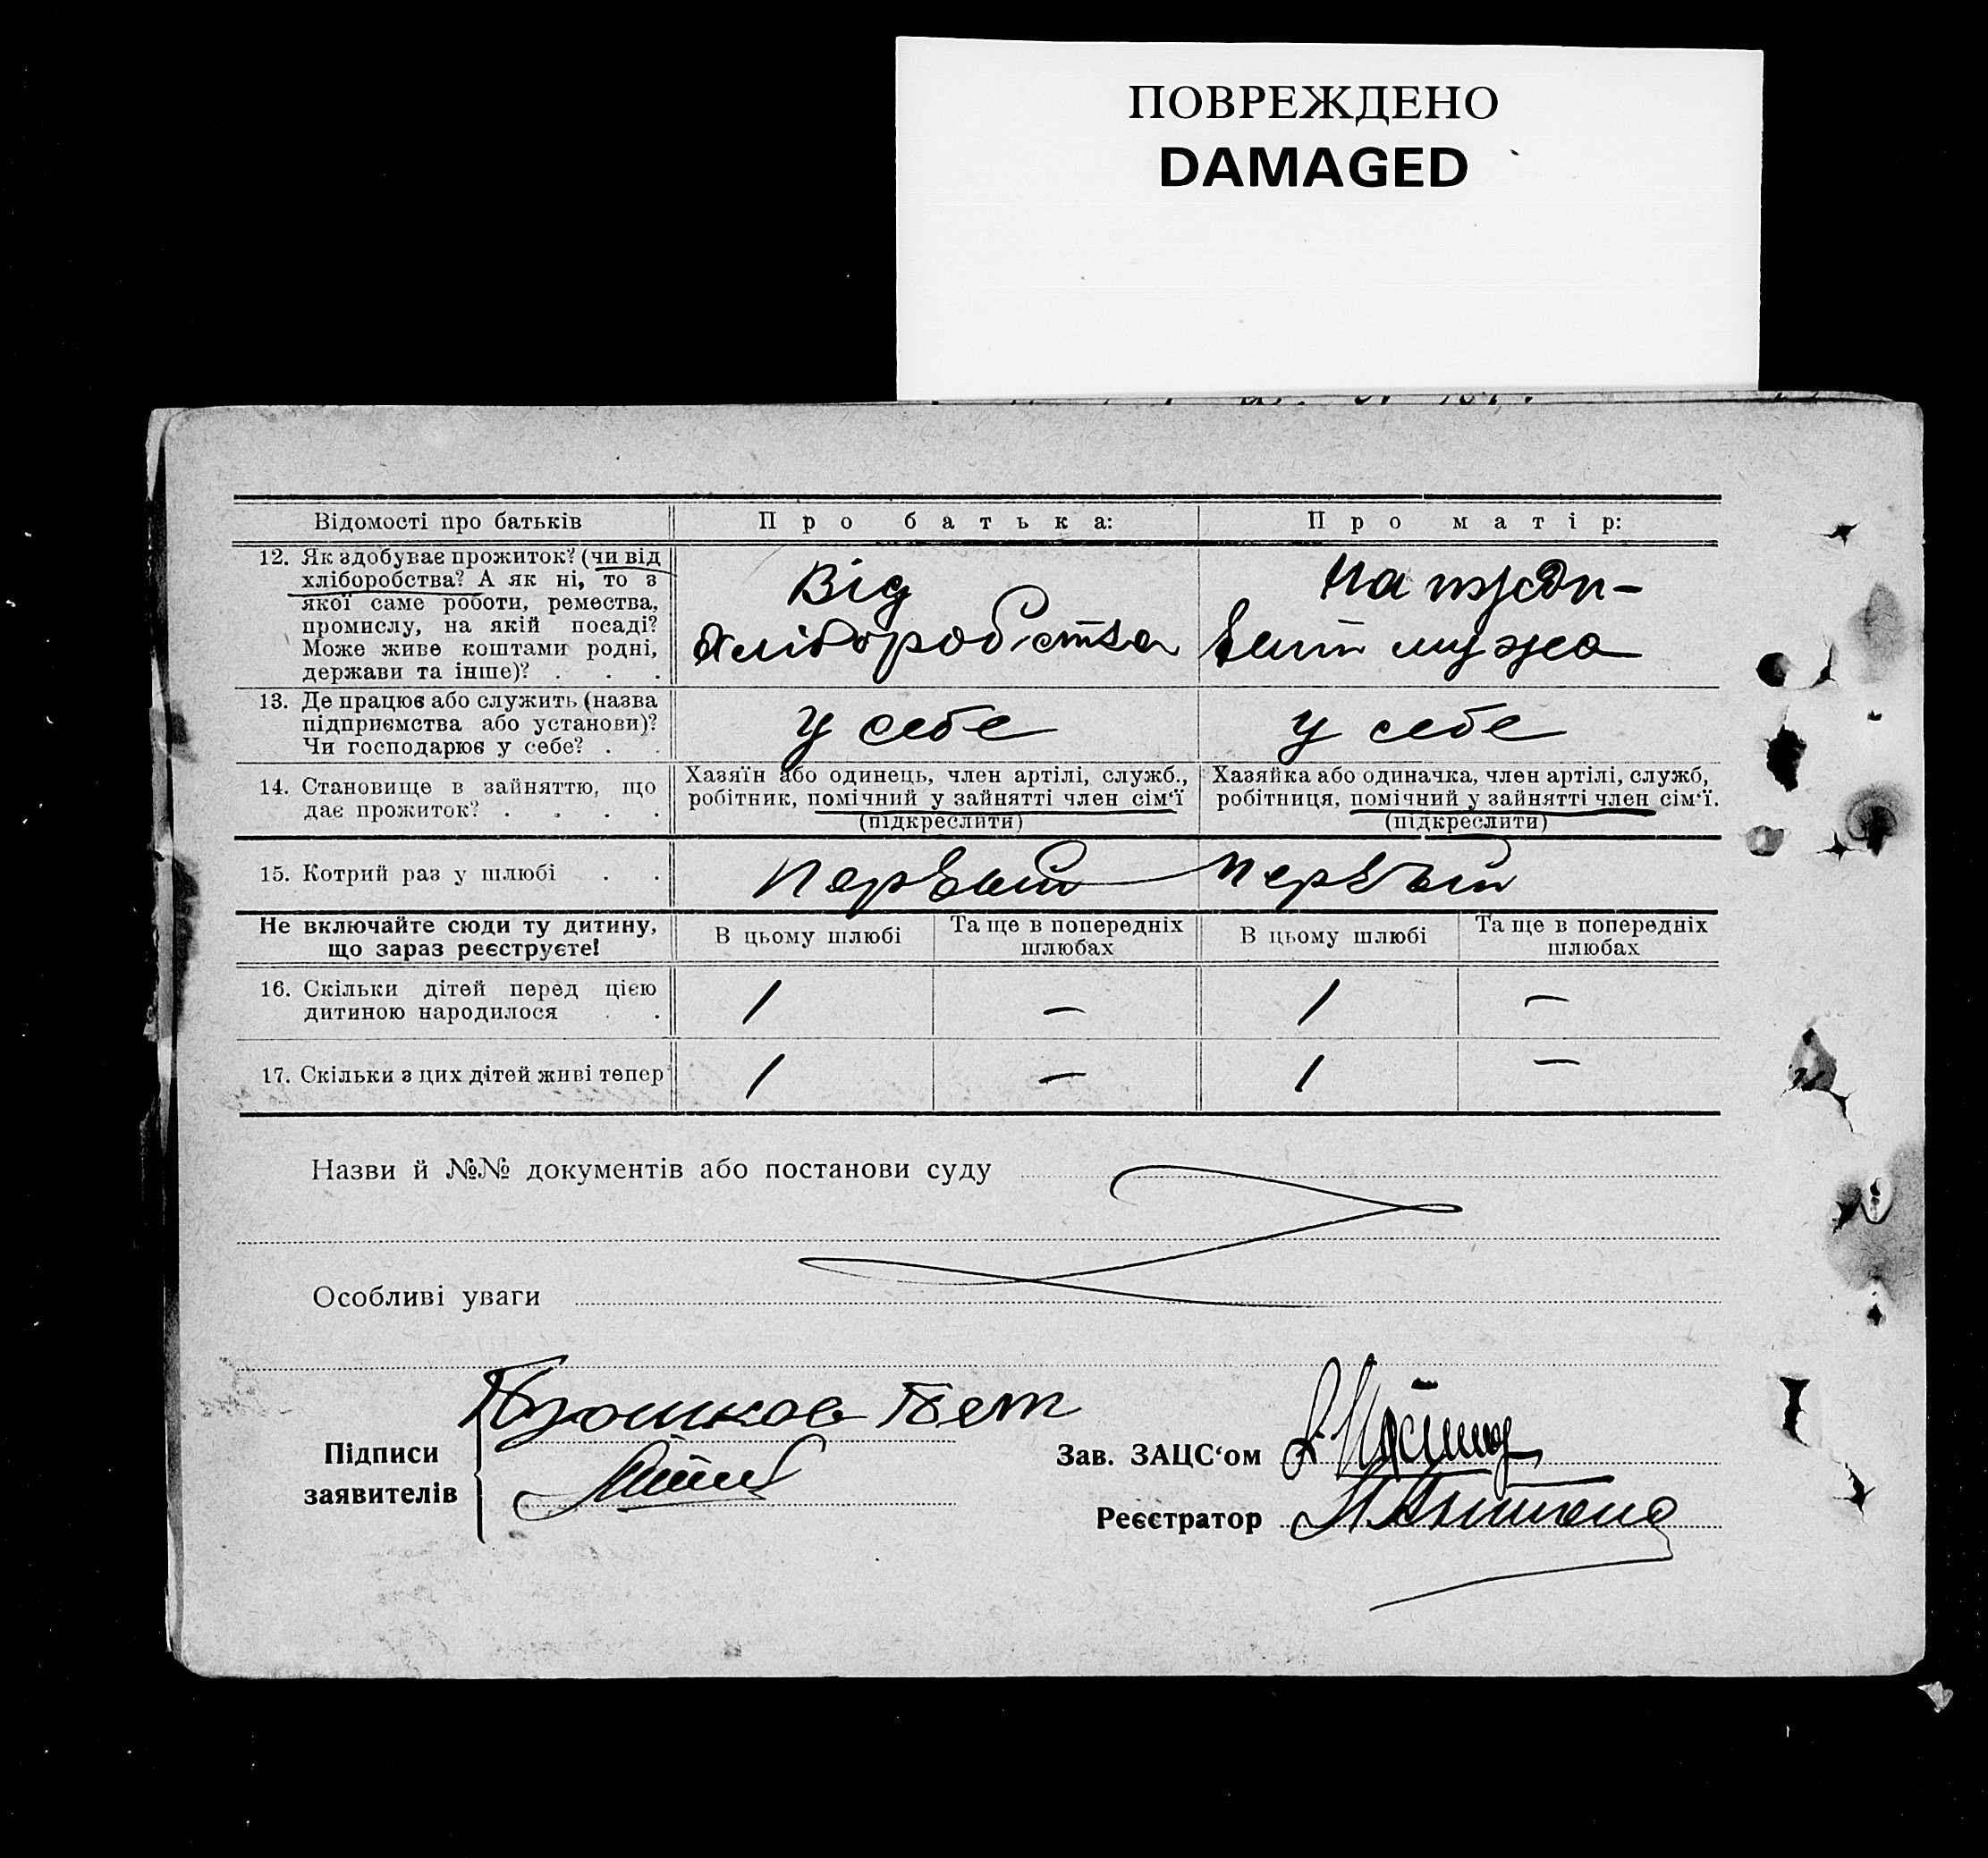 ПОВРЕЖДЕНО
DAMAGED
Відомості про батьків
Про батька:
Про матір:
12. Як здобуває прожиток? (чи від
хліборобства? А як ні, то з
якої саме роботи, ремества,
промислу, на якій посаді?
Може живе коштами родні,
держави та інше)? . . .
Від
хліборобства
На
мужа
13. Де працює або служить (назва
підприємства або установи)?
Чи господарює у себе? . .
у себе
у себе
14. Становище в зайняттю, що
дає прожиток? . . . .
Хазяїн або одинець, член артілі, служб.,
робітник, помічний у зайнятті член сім'ї
(підкреслити)
Хазяйка або одиначка, член артілі, служб,
робітниця, помічний у зайнятті член сім'ї.
(підкреслити)
15. Котрий раз у шлюбі . .
первый
первый
Не включайте сюди ту дитину,
що зараз реєструєте!
В цьому шлюбі
Та ще в попередніх
шлюбах
В цьому шлюбі
Та ще в попередніх
шлюбах
16. Скільки дітей перед цією
дитиною народилося . .
1
—
1
—
17. Скільки з цих дітей живі тепер
1
—
1
—
Назви й №№ документів або постанови суду
Особливі уваги
Підписи
заявителів
Зав. ЗАЦС'ом
Реєстратор